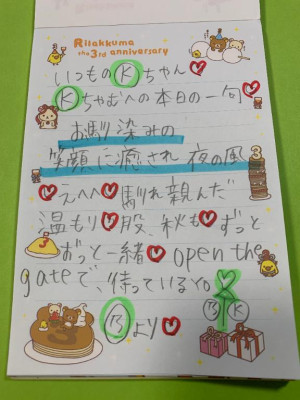 Rilakkuma
the 3rd anniversary
いつものⓀちゃん♥
Ⓚちゃむへの本日の一句♥
お馴染みの
笑顔に癒され 夜の風
♥えへへ♥馴れ親んだ
温もり♥股、秋も♥ずっと
ずっと一緒♥ open the
gateで、待っているYO
乃 K
乃より♥
3
3